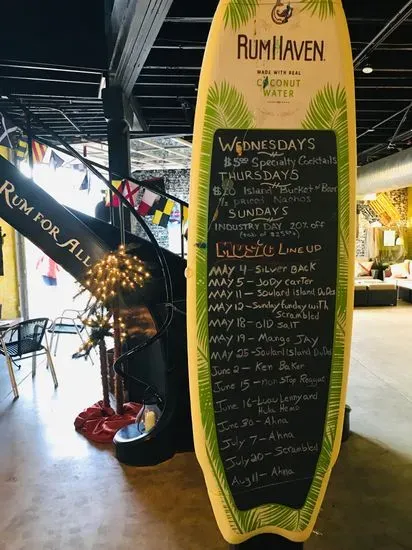 RUMHAVEN
MADE WITH REAL
COCONUT
WATER
RUM FOR ALL
WEDNESDAYS
$5.00 Specialty Cocktails
THURSDAYS
Island Bucket of Beer
1/2 priced Nachos
SUNDAYS
INDUSTRY DAY 20% off
Music LINEUP
MAY 4 - SILVER BACK
MAY 5 - JODY CARTER
MAY 11 - Soulard Island DuDes
MAY 12 - Sunday Funday with
Scrambled
MAY 18 - OLD Salt
MAY 19 - Mango Jay
MAY 25 - Soulard Island DuDes
June 2 - Ken Baker
June 15 - Non Stop Reggae
June 16 - Luau Lenny and
Hula Hemo
June 30 - Ahna
July 7 - Ahna
July 20 - Scrambled
Aug 11 - Ahna